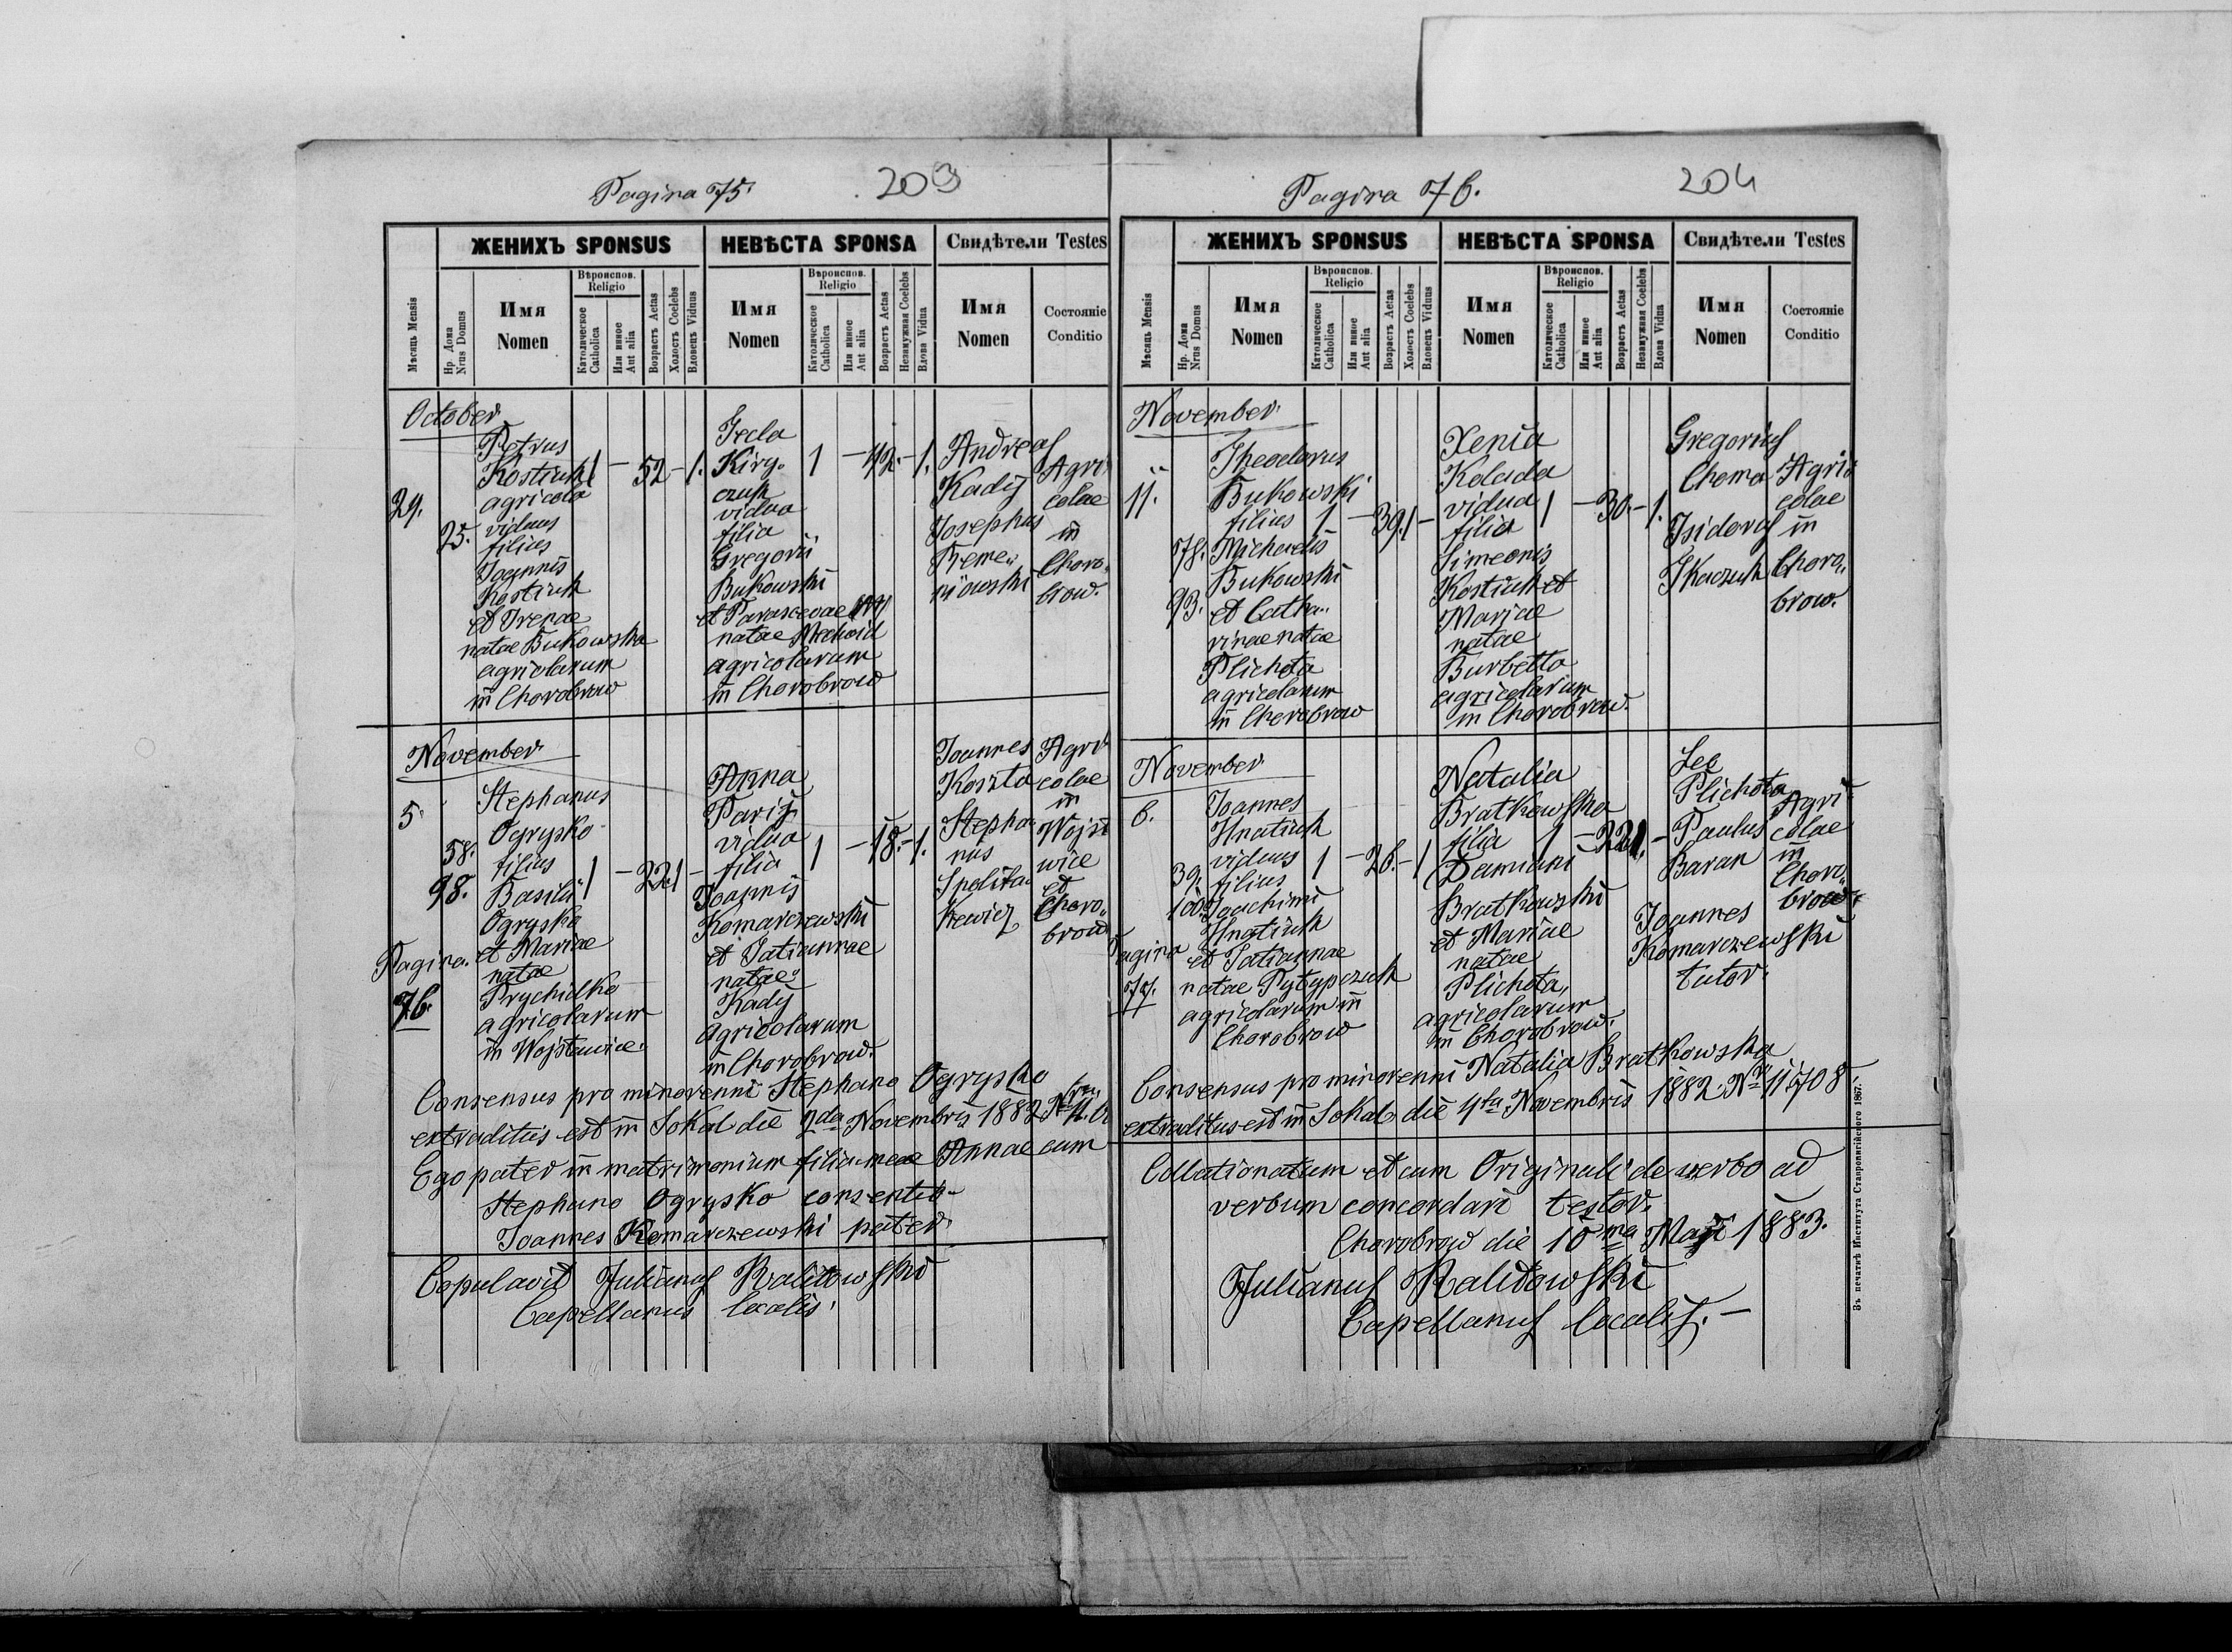 Pagina 75.
203
ЖЕНИХЪ SPONSUS
НЕВѢСТА SPONSA
Свидѣтели Testes
Мѣсяцъ Mensis
Нр. Дома
Nrus Domus
Имя
Nomen
Вѣроиспов.
Religio
Католическое
Catholica
Или инное
Aut alia
Возрастъ Aetas
Холостъ Coelebs
Вдовецъ Viduus
Имя
Nomen
Вѣроиспов.
Religio
Католическое
Catholica
Или инное
Aut alia
Возрастъ Aetas
Незамужная Coelebs
Вдова Vidua
Имя
Nomen
Состояніе
Conditio
October
29.
25.
Petrus
Kostiuk
agricola
viduus
filius
Joannis
Kostiuk
et Irenae
natae Bukowska
agricolarum
in Chorobrow
1 – 52 – 1.
Tecla
Kiry-
czuk
vidua
filia
Gregorii
Bukowski
et Parascevae
natae
agricolarum
in Chorobrow
1 – 42. – 1.
Andreas
Kadij
Josephus
Reme-
niowski
Agri-
colae
in
Choro-
brow.
November
5.
58.
98.
Pagina.
76.
Stephanus
Ogrysko
filius
Basilii
Ogrysko
et Mariae
natae
Prychidko
agricolarum
in Wojslawice.
1 – 22. 1 –
Anna
Parij
vidua
filia
Joannis
Komarczewski
et Tatiannae
natae
Kadij
agricolarum
in Chorobrow.
1 – 18. – 1.
Joannes
Koszta
Stepha-
nus
Spolita-
kewicz
Agri-
colae
in
Wojsl
wice
et
Choro-
brow
Consensus pro minorenni Stephano Ogrysko
extraditus est in Sokal die 2da Novembris 1882
Ego pater in matrimonium filiae meae Annae cum
Stephano Ogrysko consentio
Joannes Komarczewski pater.
Copulavit Julianus Kalitowski
Capellanus localis.
Pagina 76.
204
ЖЕНИХЪ SPONSUS
НЕВѢСТА SPONSA
Свидѣтели Testes
Мѣсяцъ Mensis
Нр. Дома
Nrus Domus
Имя
Nomen
Вѣроиспов.
Religio
Католическое
Catholica
Или инное
Aut alia
Возрастъ Aetas
Холостъ Coelebs
Вдовецъ Viduus
Имя
Nomen
Вѣроиспов.
Religio
Католическое
Catholica
Или инное
Aut alia
Возрастъ Aetas
Незамужная Coelebs
Вдова Vidua
Имя
Nomen
Состояніе
Conditio
November
11.
78.
93.
Theodorus
Bukowski
filius
Michaelis
Bukowski
et Catha-
rinae natae
Plichota
agricolarum
in Chorobrow
1 – 39. 1 –
Xenia
Kolada
vidua
filia
Simeonis
Kostiuk et
Mariae
natae
Burbetta
agricolarum
in Chorobrow.
1 – 30. – 1.
Gregorius
Choma
Isidorus
Tkaczuk
Agri-
colae
in
Choro-
brow.
November
6.
39.
100.
Pagina
77.
Joannes
Hnatiuk
viduus
filius
Joachimi
Hnatiuk
et Tatiannae
natae Pytypczuk
agricolarum in
Chorobrow
1 – 26. – 1
Natalia
Bratkowska
filia
Damiani
Bratkowski
et Mariae
natae
Plichota,
agricolarum
in Chorobrow.
1 – 22 1. –
Leo
Plichota
Paulus
Baran
Joannes
Komarczewski
tutor.
Agri-
colae
in
Choro-
brow.
Consensus pro minorenni Natalia Bratkowska
extraditus est in Sokal die 4ta Novembris 1882 Nro 11708
Collationatum et cum Originali de verbo ad
verbum concordari testor.
Chorobrow die 10ma Maji 1883.
Julianus Kalitowski
Capellanus localis. –
Въ печатнѣ Института Ставропигійского 1867.